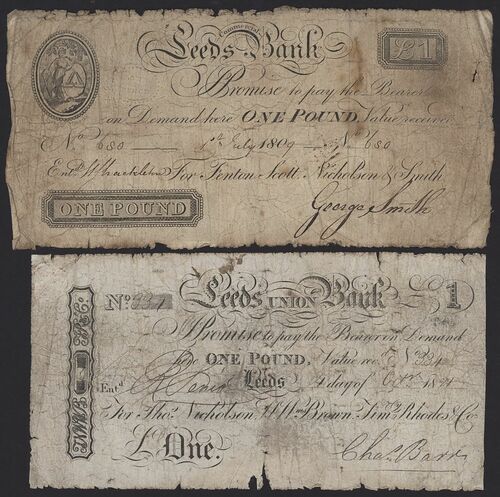 Commercial
Leeds Bank £1
I Promise to pay the Bearer
on Demand here ONE POUND Value received
No. 680 1st July 1809 No 680
Entd. For Fenton Scott, Nicholson & Smith
ONE POUND George Smith
No. 334 Leeds UNION Bank £ 1
I Promise to pay the Bearer on Demand
here ONE POUND, Value recd. No 334
Entd. Leeds day of
For Thos. Nicholson, Wm Brown, Jas. Rhodes & Co.
£ One. Chas. Barr